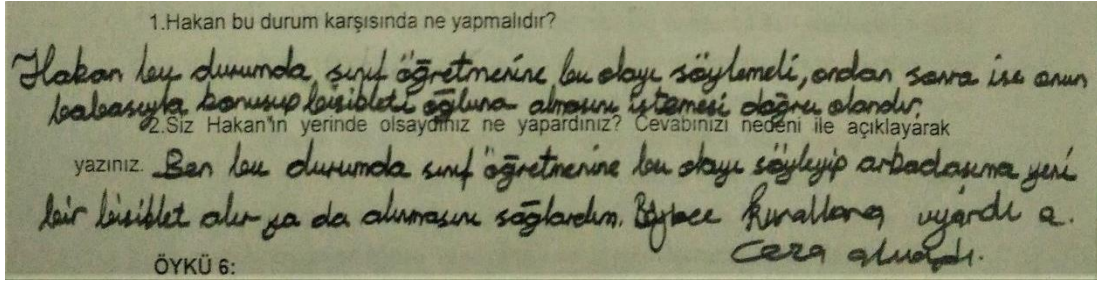 1.Hakan bu durum karşısında ne yapmalıdır?
Hakan bu durumda sınıf öğretmenine bu olayı söylemeli, ondan sonra ise onun
babasıyla konusup bisibleti oğluna almasını istemesi doğru olandır.
2.Siz Hakan'ın yerinde olsaydınız ne yapardınız? Cevabınızı nedeni ile açıklayarak
yazınız. Ben bu durumda sınıf öğretmenine bu olayı söyleyip arkadasıma yeni
bir bisiblet alır ya da alınmasını sağlardım. Böylece kurallara uyardı a.
Ceza almazdı.
ÖYKÜ 6: